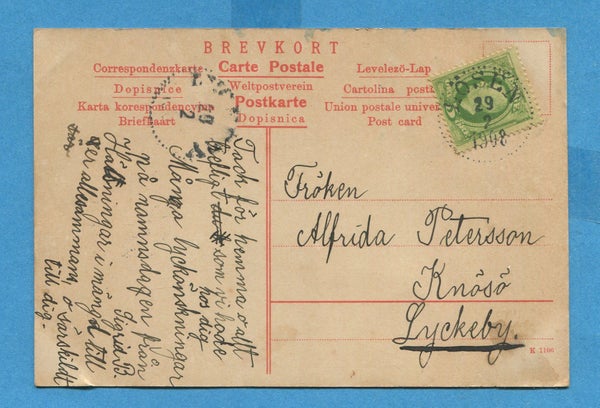 BREVKORT
Correspondenzkarte Carte Postale Levelező-Lap
Dopisnice Weltpostverein Cartolina posta
Karta korespondencyjna Postkarte Union postale univer
Briefkaart Dopisnica Post card
29
2
ÖSEN
29
2
1908
Tack för hemma o allt
trefligt som vi hade
hos dig
Många lyckönskningar
på namnsdagen från
Sigrid B.
Hälsningar i mängd till
er allesammans, o särskildt
till dig.
Fröken
Alfrida Petersson
Knösö
Lyckeby.
K 1106